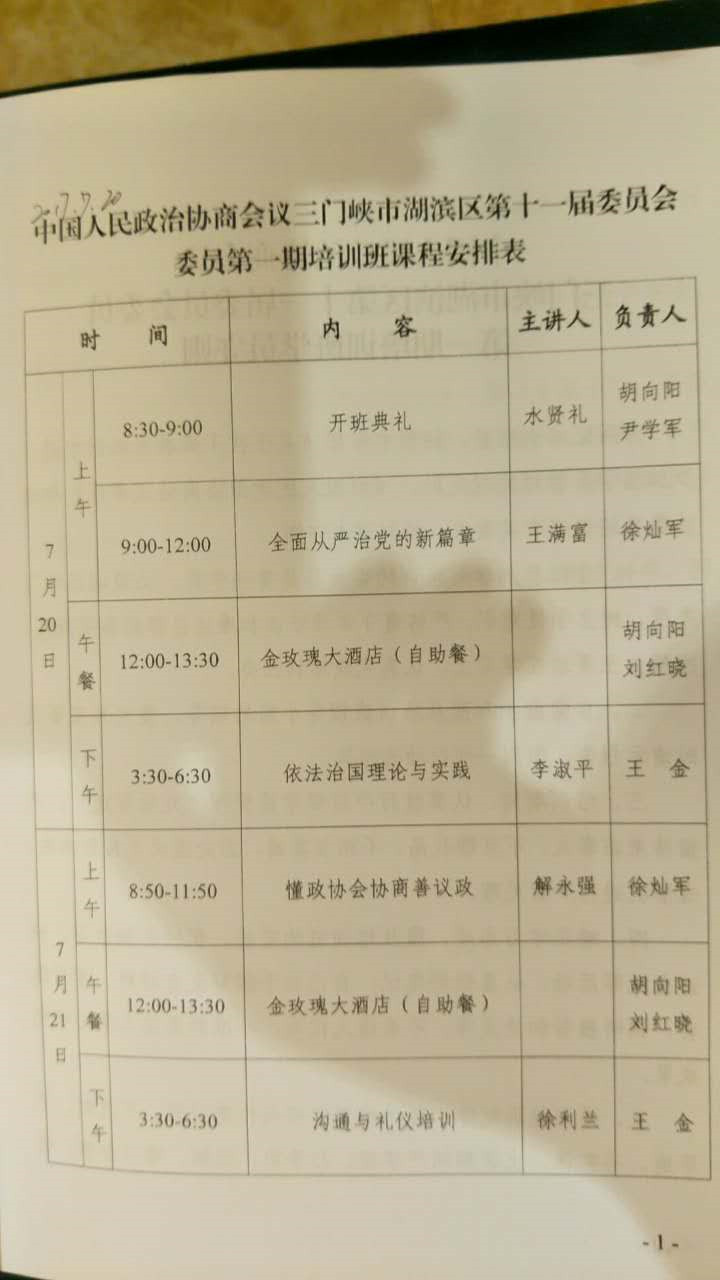 中国人民政治协商会议三门峡市湖滨区第十一届委员会
委员第一期培训班课程安排表
时 间 内 容 主讲人 负责人
7月20日 上午 8:30-9:00 开班典礼 水贤礼 胡向阳 尹学军
9:00-12:00 全面从严治党的新篇章 王满富 徐灿军
午餐 12:00-13:30 金玫瑰大酒店（自助餐） 胡向阳 刘红晓
下午 3:30-6:30 依法治国理论与实践 李淑平 王 金
7月21日 上午 8:50-11:50 懂政协会协商善议政 解永强 徐灿军
午餐 12:00-13:30 金玫瑰大酒店（自助餐） 胡向阳 刘红晓
下午 3:30-6:30 沟通与礼仪培训 徐利兰 王 金
- 1 -